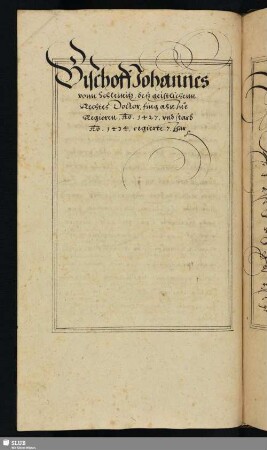 Bischoff Johannes
vonn Schleinitz, deß geistlichenn
Rechtes Doctor, fing ahn zu
Regieren, Ao. 1427. vnd starb
Ao. 1434. regierte 7. Jhar
SLUB